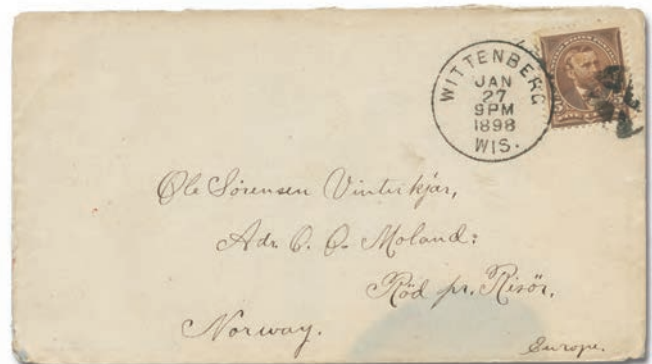 WITTENBERG
JAN
27
9PM
1898
WIS.
Ole Sörensen Vinterkjær,
Adr. O. O. Moland:
Röd pr. Risör.
Norway.
Europe.